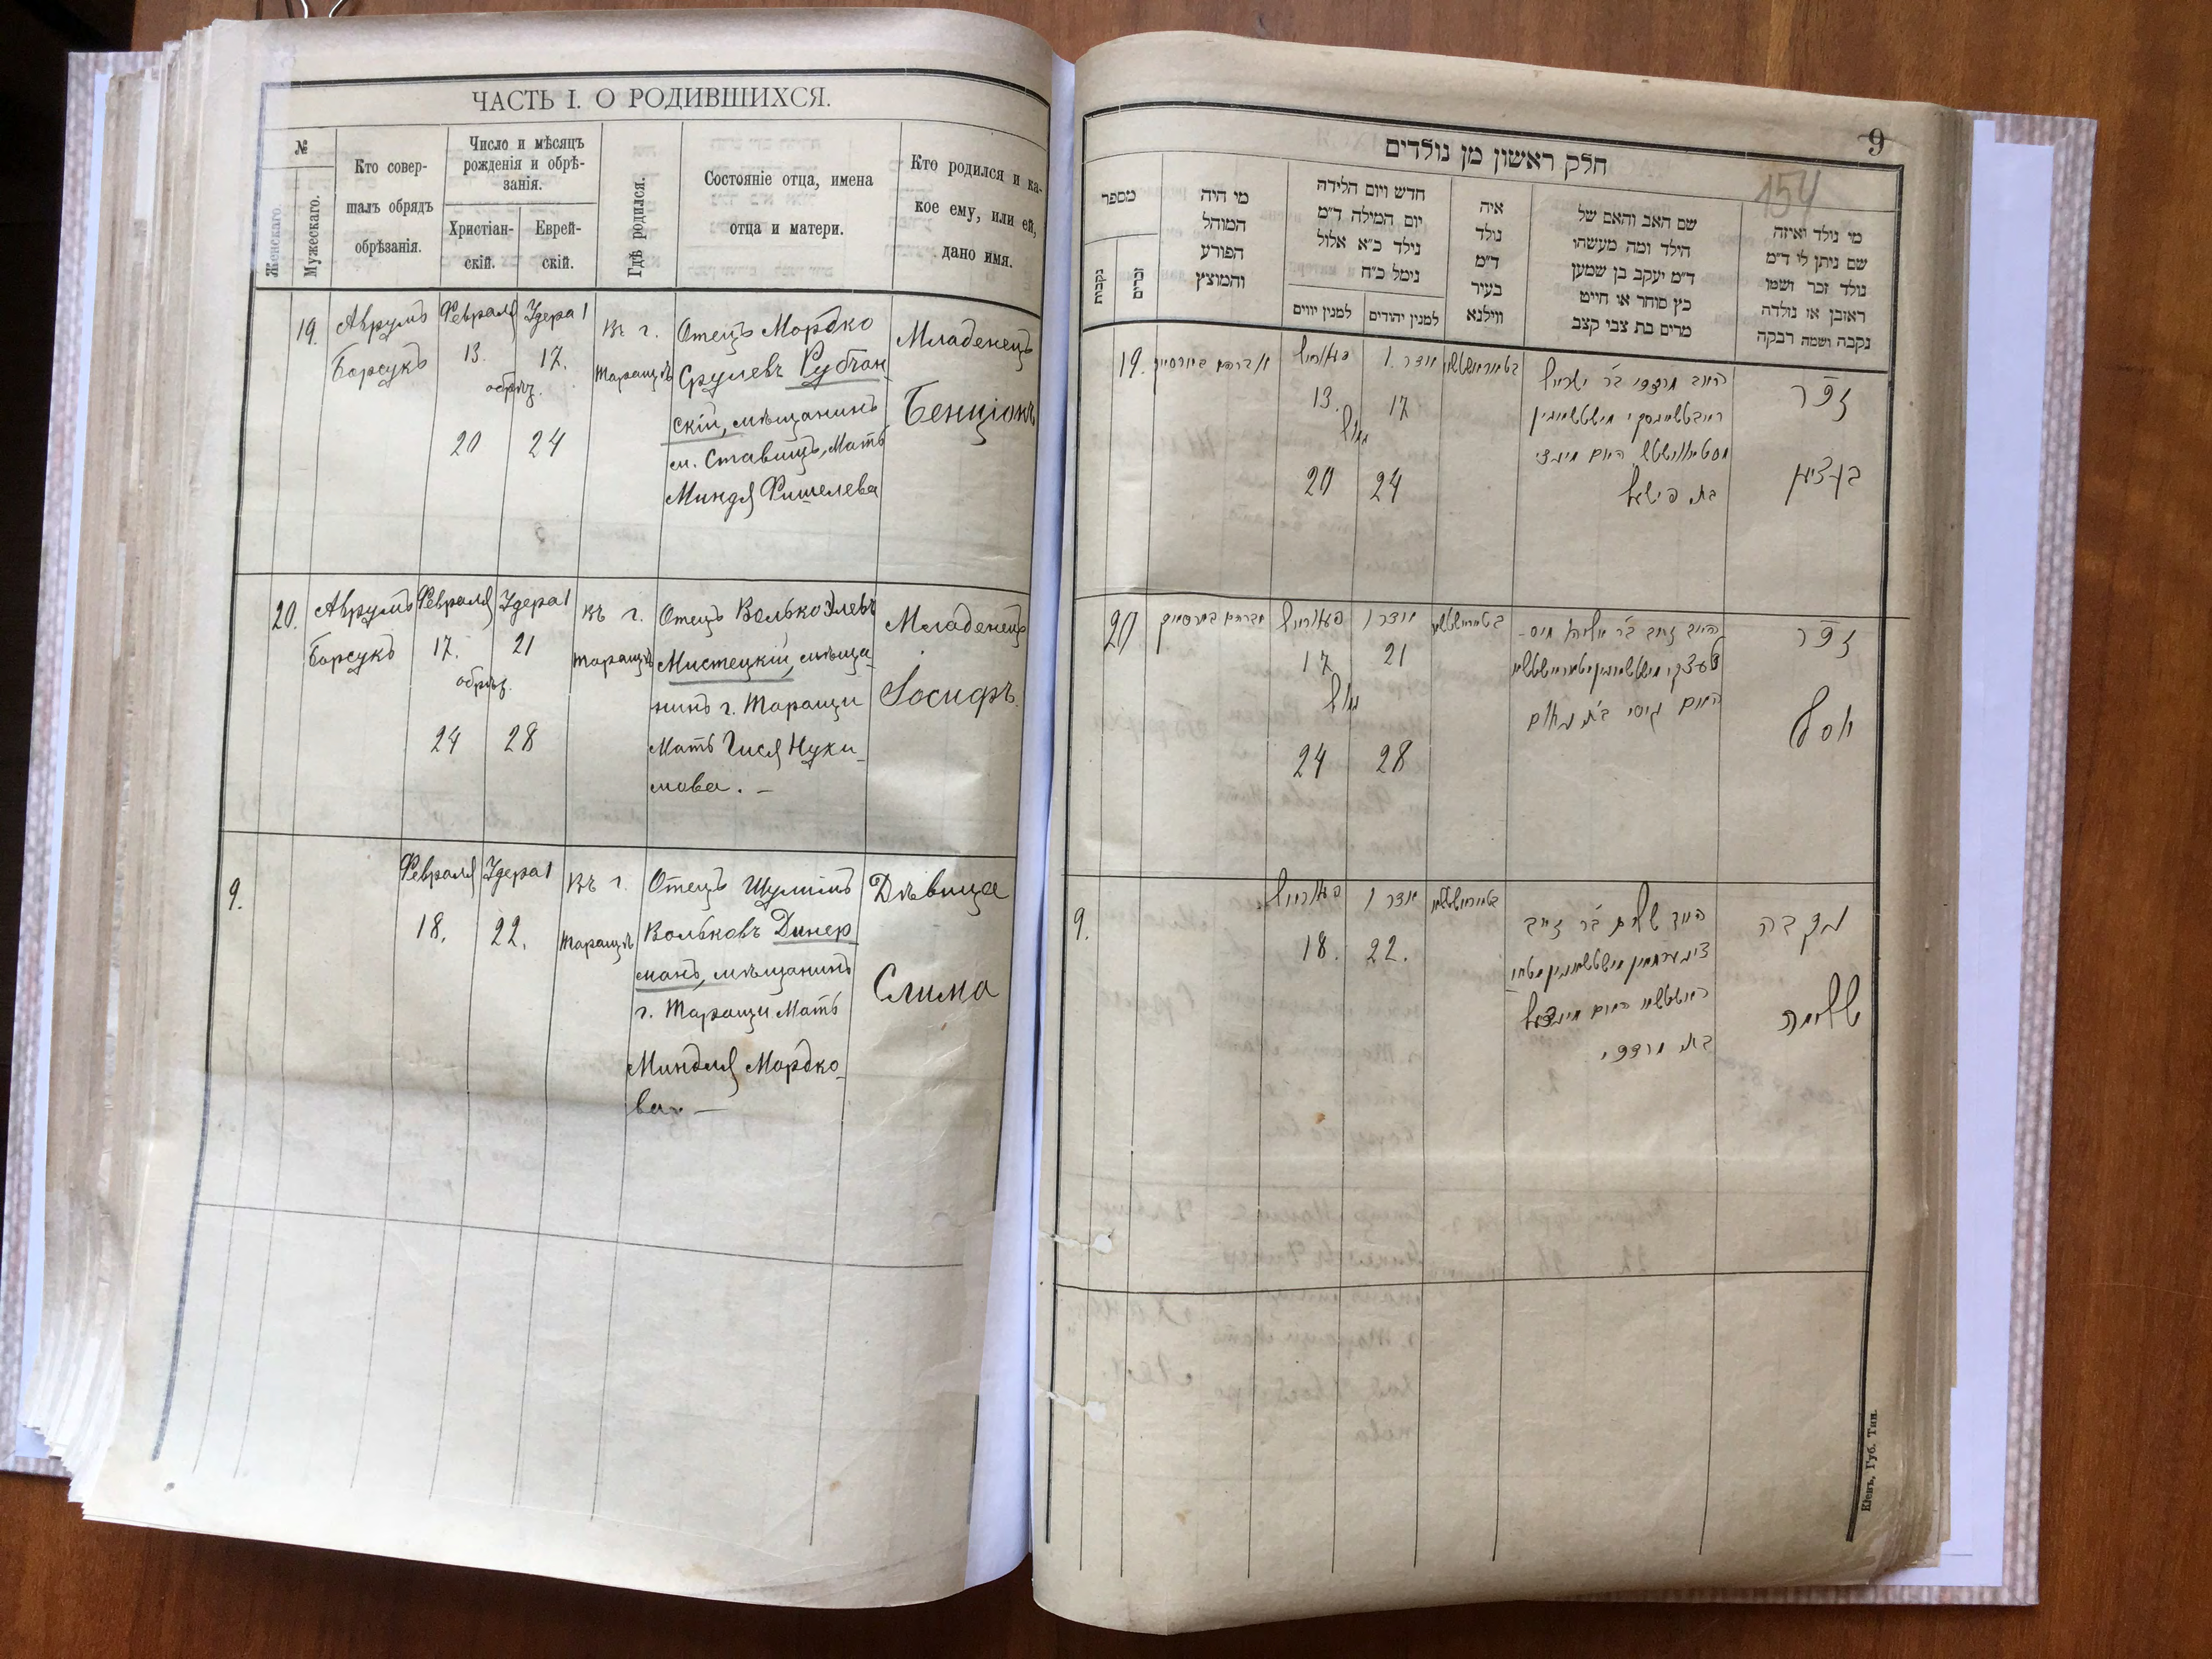 ЧАСТЬ I. О РОДИВШИХСЯ.
№
Женскаго.
Мужескаго.
Кто совер-
шалъ обрядъ
обрѣзанія.
Число и мѣсяцъ
рожденія и обрѣ-
занія.
Христіан-
скій.
Еврей-
скій.
Гдѣ родился.
Состояніе отца, имена
отца и матери.
Кто родился и ка-
кое ему, или ей,
дано имя.
19.
Аврумъ
Борсукъ
Февраля
13.
Адера 1
17.
обрѣз.
20
24
Въ г.
Таращѣ
Отецъ Мордко
Срулевъ Рубчан
скій, мѣщанинъ
м. Ставищъ, Мать
Миндя Фишелева
Младенецъ
Бенціонъ
20.
Аврумъ
Борсукъ
Февраля
17.
Адера 1
21
обрѣз.
24
28
Въ г.
Таращѣ
Отецъ Волько Элевъ
Мистецкій, мѣща-
нинъ г. Таращи
Мать Гися Нухи-
мова. –
Младенецъ
Іосифъ.
9.
Февраля
18.
Адера 1
22.
Въ г.
Таращѣ
Отецъ Шулимъ
Вольковъ Динер
манъ, мѣщанинъ
г. Таращи Мать
Миндля Мордко-
ва. –
Дѣвица
Слима
9
154
חלק ראשון מן נולדים
מספר
נקבות
זכרים
מי היה
המוהל
הפורע
והמוצץ
חדש ויום הלידה
יום המילה ד״מ
נילד כ״א אלול
נימל כ״ח
למנין יווים
למנין יהודים
איה
נולד
ד״מ
בעיר
ווילנא
שם האב והאם של
הילד ומה מעשהו
ד״מ יעקב בן שמען
כץ סוחר או חייט
מרים בת צבי קצב
מי נולד ואיזה
שם ניתן לי ד״מ
נולד זכר ושמו
ראובן או נולדה
נקבה ושמה רבקה
19.
אברהם בארסוק
פעברואר
13.
אדר 1
17
נמול
20
24
האב מרדכי ב״ר ישראל
האם מינדי
בת פישעל
זכר
בן ציון
20
אברהם בארסוק
פעברואר
17
אדר 1
21
נמול
24
28
האב זאב ב״ר אליהו מיס-
האם גיסי בת נחום
זכר
יוסף
9.
פעברואר
18.
אדר 1
22.
האב שלום ב״ר זאב
האם מינדל
בת מרדכי
נקבה
שלימה
Кіевъ, Губ. Тип.